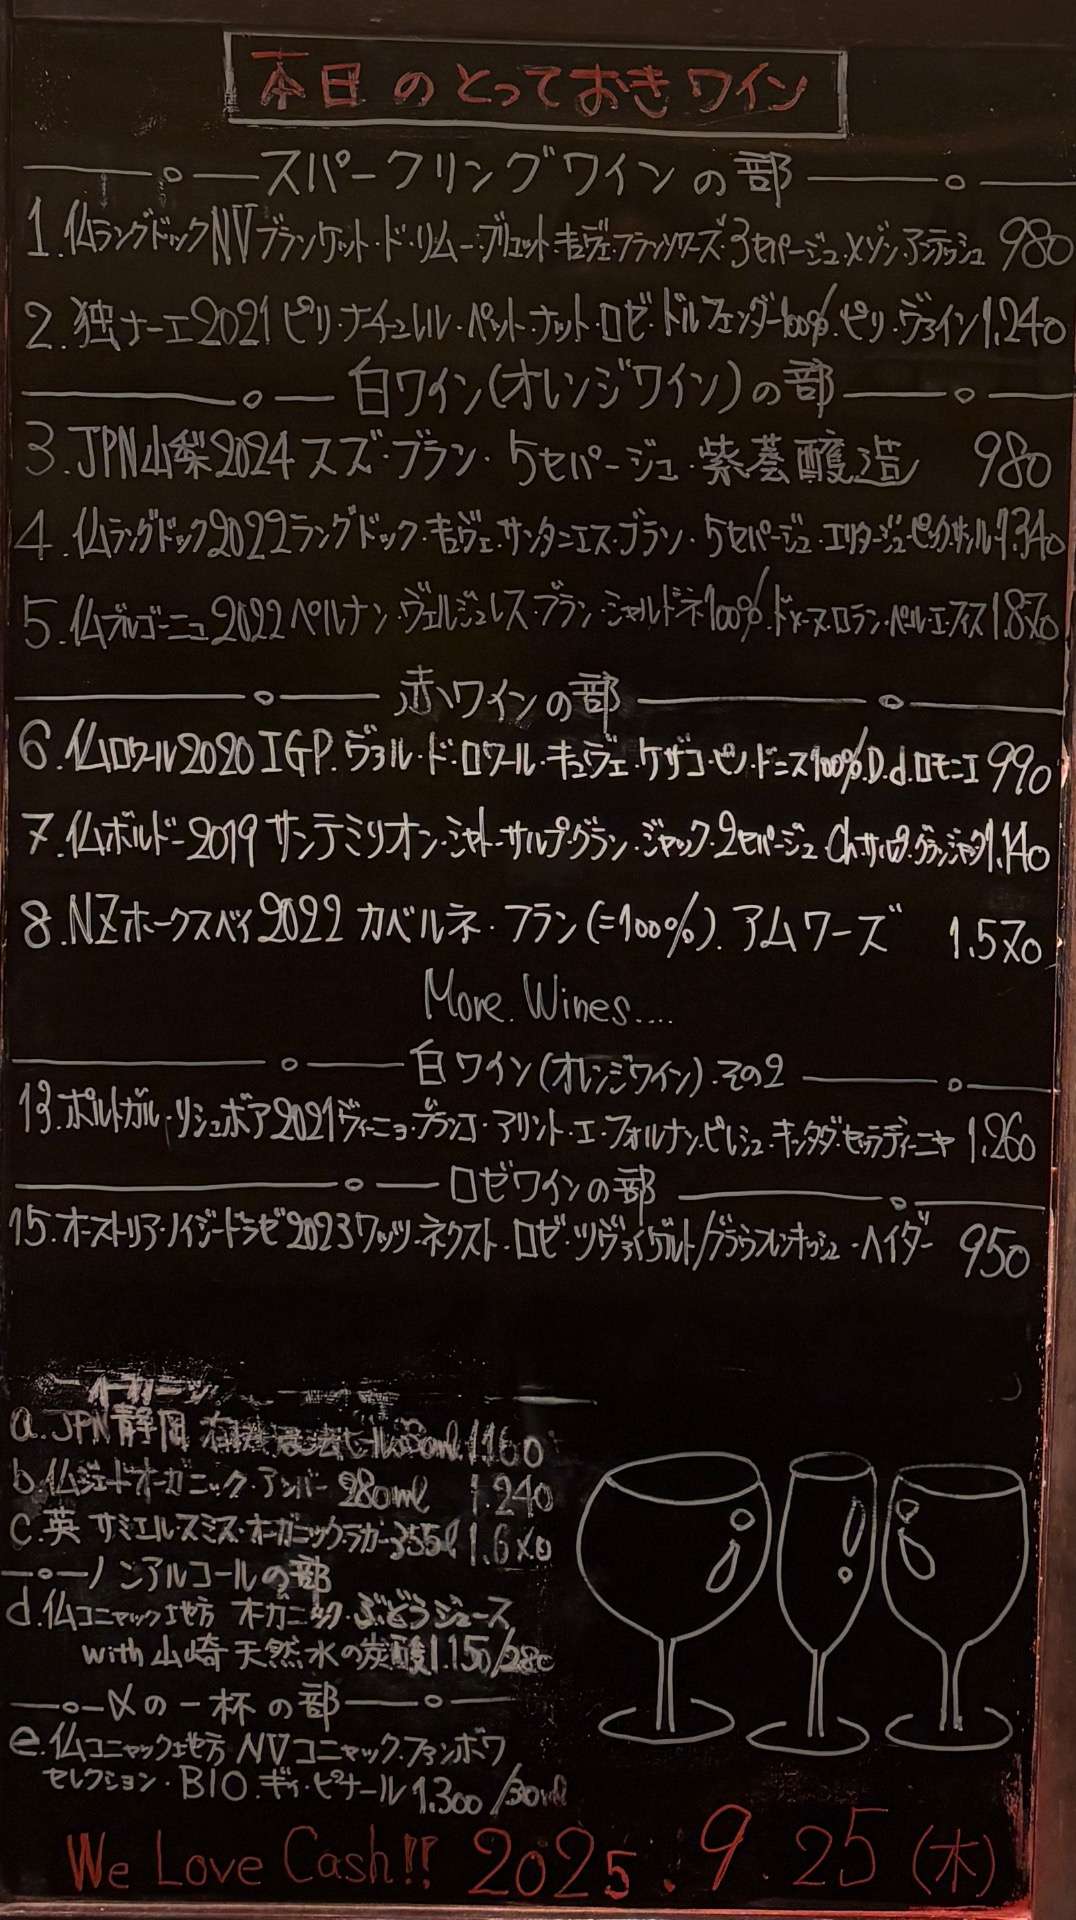 本日のとっておきワイン
スパークリングワインの部
1.仏ラングドックNVブランケット・ド・リムー・ブリュット・キュヴェ・フランソワーズ・3セパージュ・メゾン・アンテッシュ 980
2.独ナーエ2021ピリ・ナチュレル・ペット・ナット・ロゼ・ドルンフェルダー100%.ピリ・ヴァイン1.240
白ワイン(オレンジワイン)の部
3.JPN山梨2024スズ・ブラン・5セパージュ・紫薹醸造 980
4.仏ラングドック2022ラングドック・キュヴェ・サンタニエス・ブラン・5セパージュ・エリタージュ・ピック・サンルー1.340
5.仏ブルゴーニュ2022ペルナン・ヴェルジュレス・ブラン・シャルドネ100%.ドメーヌ・ロラン・ペール・エ・フィス1.870
赤ワインの部
6.仏ロワール2020IGP.ヴァル・ド・ロワール・キュヴェ・ケザコ・ピノ・ドニス100%.D.d.ロモニエ990
7.仏ボルドー2019サンテミリオン・シャトーサルプ・グラン・ジャック・2セパージュ・Ch.サルプ・グランジャック1.140
8.NZホークスベイ2022カベルネ・フラン(=100%).アムワーズ 1.570
More.Wines....
白ワイン(オレンジワイン).その2
13.ポルトガル・リシュボア2021ヴィーニョ・ブランコ・アリント・エ・フェルナン・ピレシュ・キンタダ・セッラディーニャ 1.260
ロゼワインの部
15.オーストリア・ノイジードラゼ2023ワッツ・ネクスト・ロゼ・ツヴァイゲルト/ブラウフレンキッシュ・ハイダー 950
a.JPN静岡 有機農法ビール 1.160
b.仏ジェードオーガニック・アンバー 280ml 1.240
c.英 サミエルスミス・オーガニックラガー355l 1.670
ノンアルコールの部
d.仏コニャック地方 オーガニック・ぶどうジュース
with山崎天然水の炭酸1.150/280
〆の一杯の部
e.仏コニャック地方NVコニャック.ファンボワ
セレクション・BIO.ギィ・ピナール1.300/30ml
We Love Cash!! 2025.9.25(木)